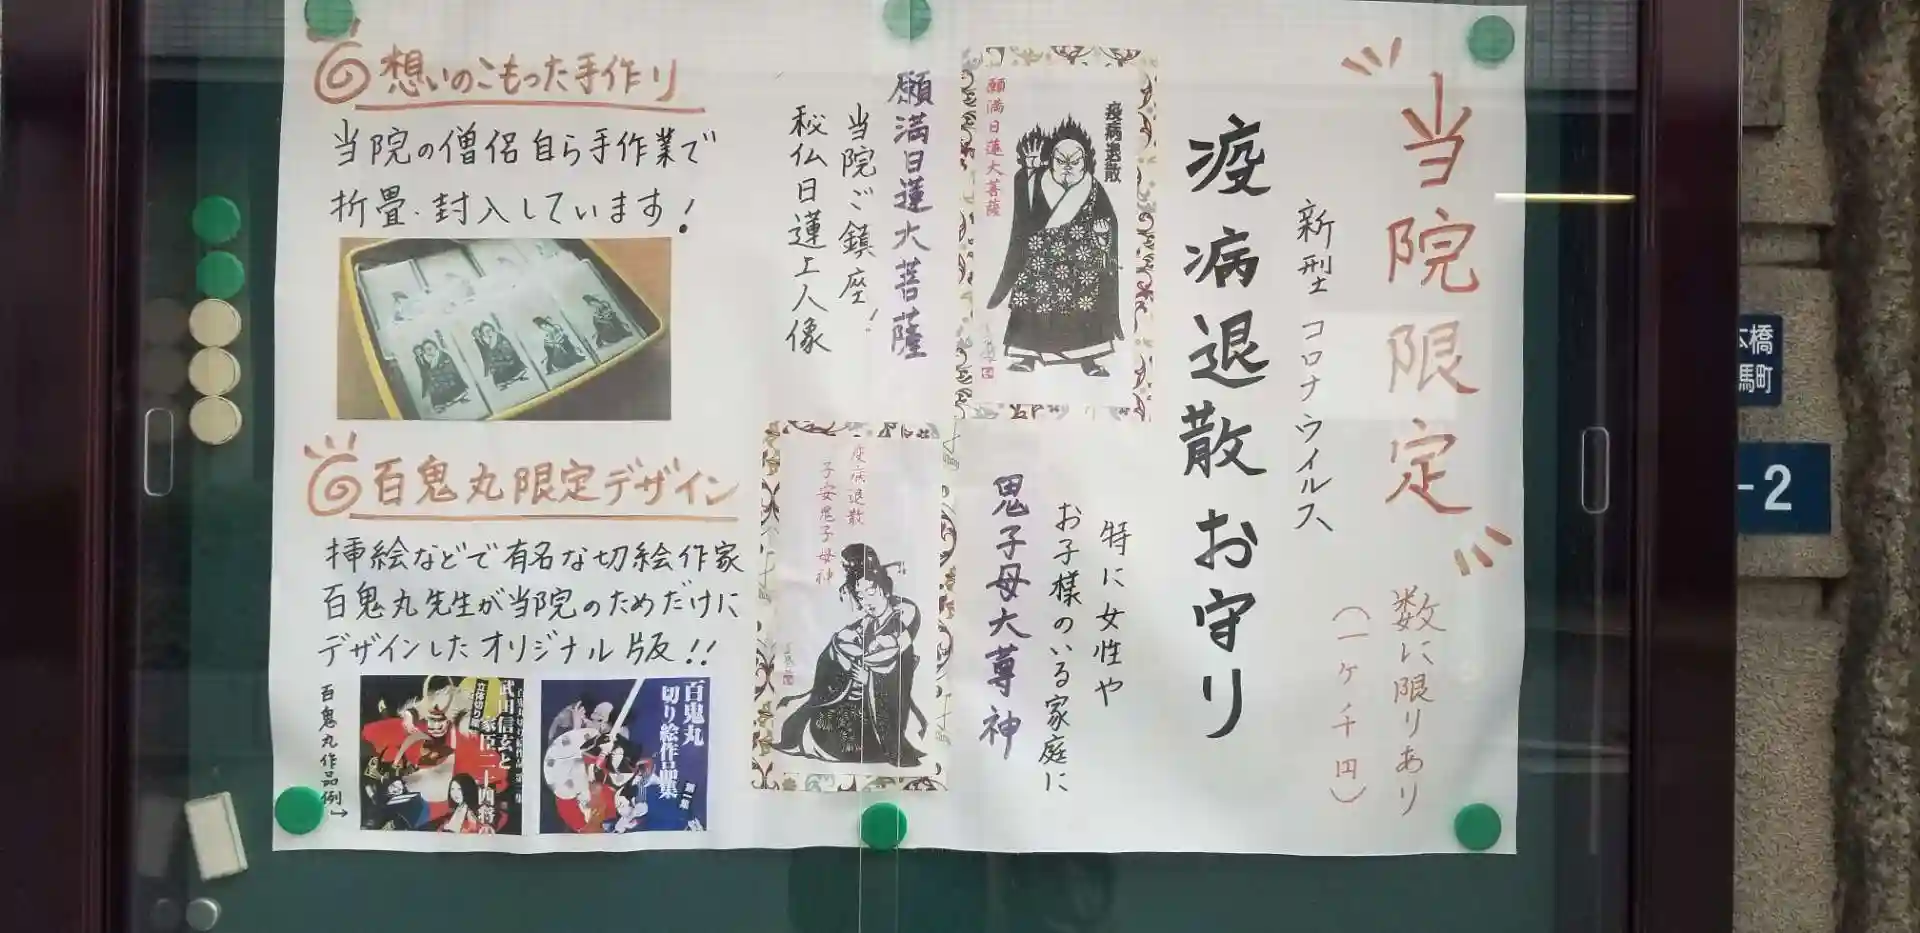 当院限定
数に限りあり
(一ケ千円)
新型コロナウイルス
疫病退散お守り
疫病退散
願満日蓮大菩薩
願満日蓮大菩薩
当院ご鎮座!
秘仏日蓮上人像
特に女性や
お子様のいる家庭に
鬼子母大尊神
疫病退散
子安鬼子母神
想いのこもった手作り
当院の僧侶自ら手作業で
折畳・封入しています!
百鬼丸限定デザイン
挿絵などで有名な切絵作家
百鬼丸先生が当院のためだけに
デザインしたオリジナル版!!
百鬼丸作品例→
立体切り絵
武田信玄と
家臣二十四将の
百鬼丸
切り絵作品集
第一集
橋
馬町
-2